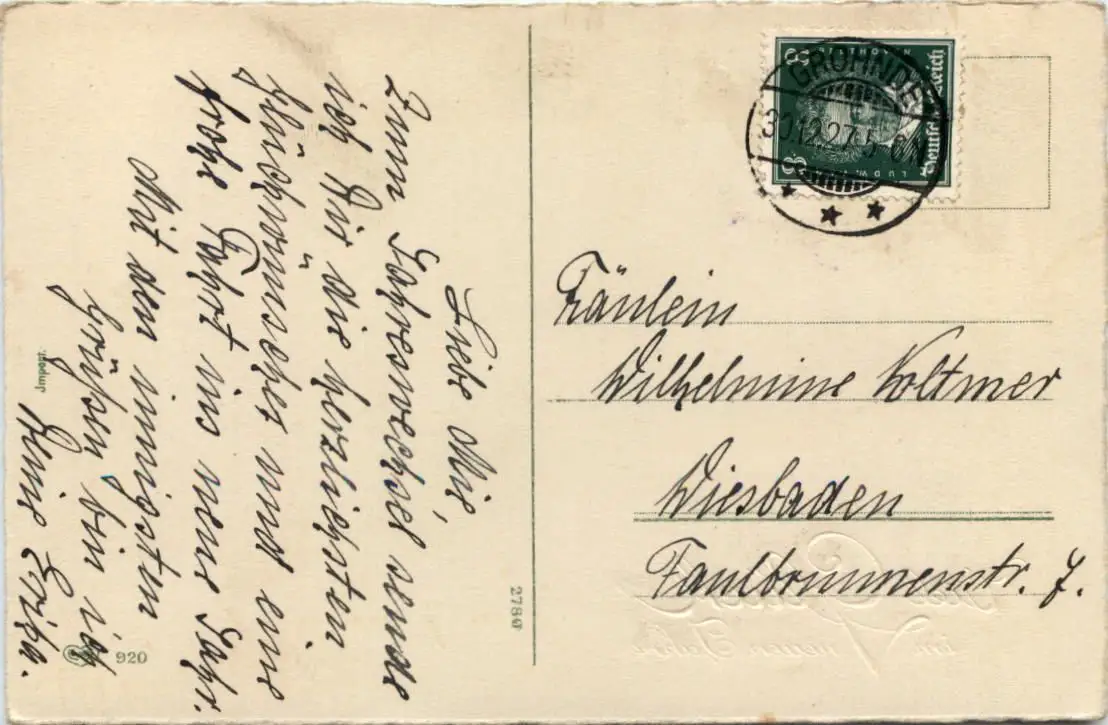 Liebe Mie,
Zum Jahreswechsel sende
ich Dir die herzlichsten
Glückwünsche und eine
frohe Fahrt ins neue Jahr.
Mit den innigsten
Grüßen bin ich
Deine Erika.
Jmport.
920
2786
LUDW. BEETHOVEN
Deutsches Reich
8
8
GROHNDE
30.12.27.5-6N
Fräulein
Wilhelmine Voltmer
Wiesbaden
Faulbrunnenstr. 7.
im neuen Jahre